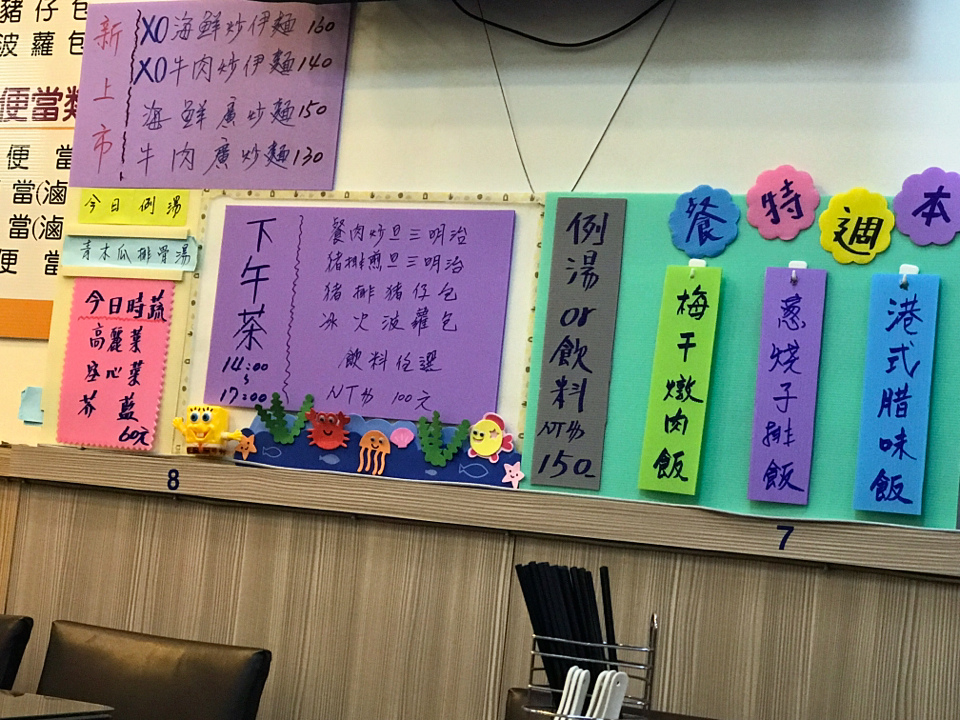 豬仔包
波蘿包
便當類
便當
當(滷
當(滷
便當
新上市
XO海鮮炒伊麵160
XO牛肉炒伊麵140
海鮮廣炒麵150
牛肉廣炒麵130
今日例湯
青木瓜排骨湯
今日時蔬
高麗菜
空心菜
芥藍
60元
下午茶
14:00
~
17:00
餐肉炒旦三明治
豬排煎旦三明治
豬排豬仔包
冰火波蘿包
飲料任選
NT$ 100元
例湯or飲料NT$150
本週特餐
梅干燉肉飯
蔥燒子排飯
港式腊味飯
8
7